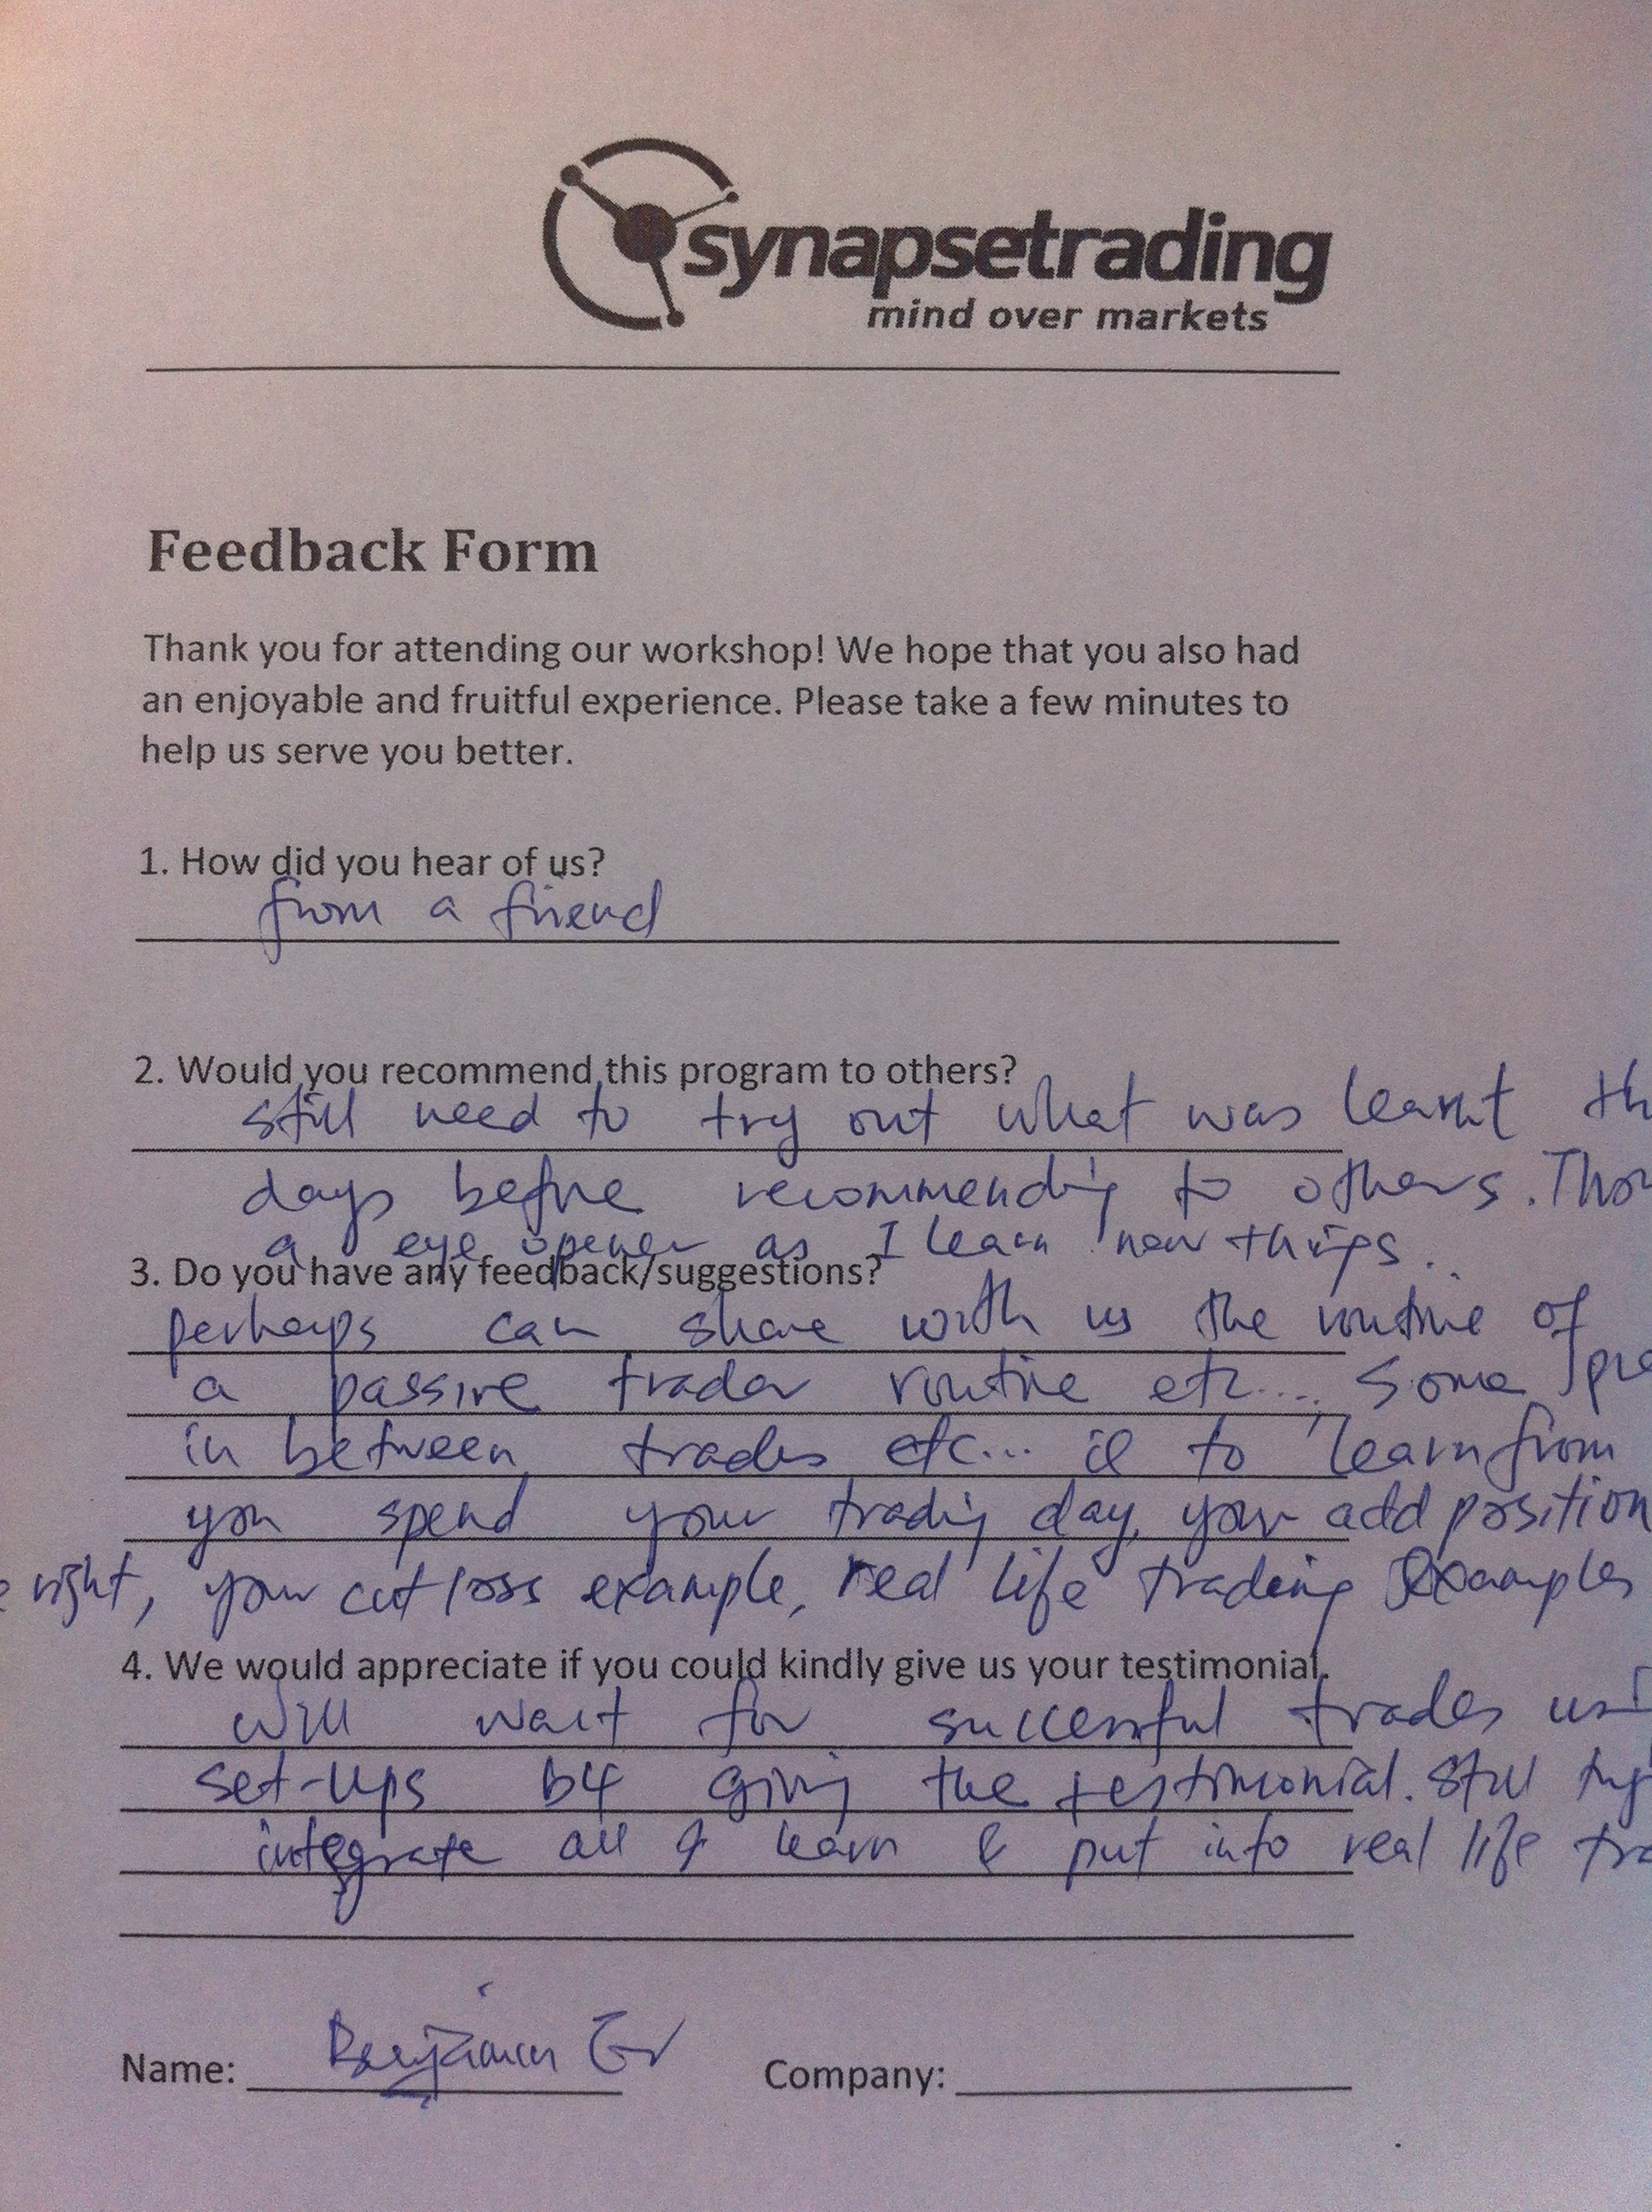 synapsetrading
mind over markets
Feedback Form
Thank you for attending our workshop! We hope that you also had
an enjoyable and fruitful experience. Please take a few minutes to
help us serve you better.
1. How did you hear of us?
from a friend
2. Would you recommend this program to others?
still need to try out what was learnt
days before recommending to others.
a eye opener as I learn new things..
3. Do you have any feedback/suggestions?
perhaps can share with us the routine of
a passive trader routine etc.... some
in between trades etc... ie to learn from
you spend your trading day, your add position
right, your cut loss example, real life trading examples
4. We would appreciate if you could kindly give us your testimonial.
will wait for successful trades
set-ups b4 giving the testimonial. Still
integrate all I learn & put into real life
Name: Benjamin
Company: